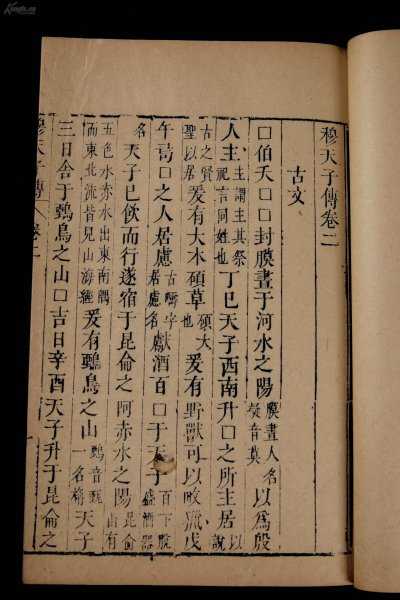 穆天子傳卷二
古文
口伯夭口口封膜晝于河水之陽膜晝人名疑音莫以為殷
人主主謂主其祭祀言同姓也丁巳天子西南升口之所主居以說
古之賢聖以居爰有大木碩草碩大也爰有野獸可以畋獵戊
午口之人居慮古疇字居慮名獻酒百口于天子百下脫盛酒器
名天子已飲而行遂宿于昆侖之阿赤水之陽昆侖山有
五色水赤水出東南隅而東北流皆見山海經爰有鳥之山音一名天子
三日舍于鳥之山口吉日辛酉天子升于昆侖之
穆天子傳 卷二